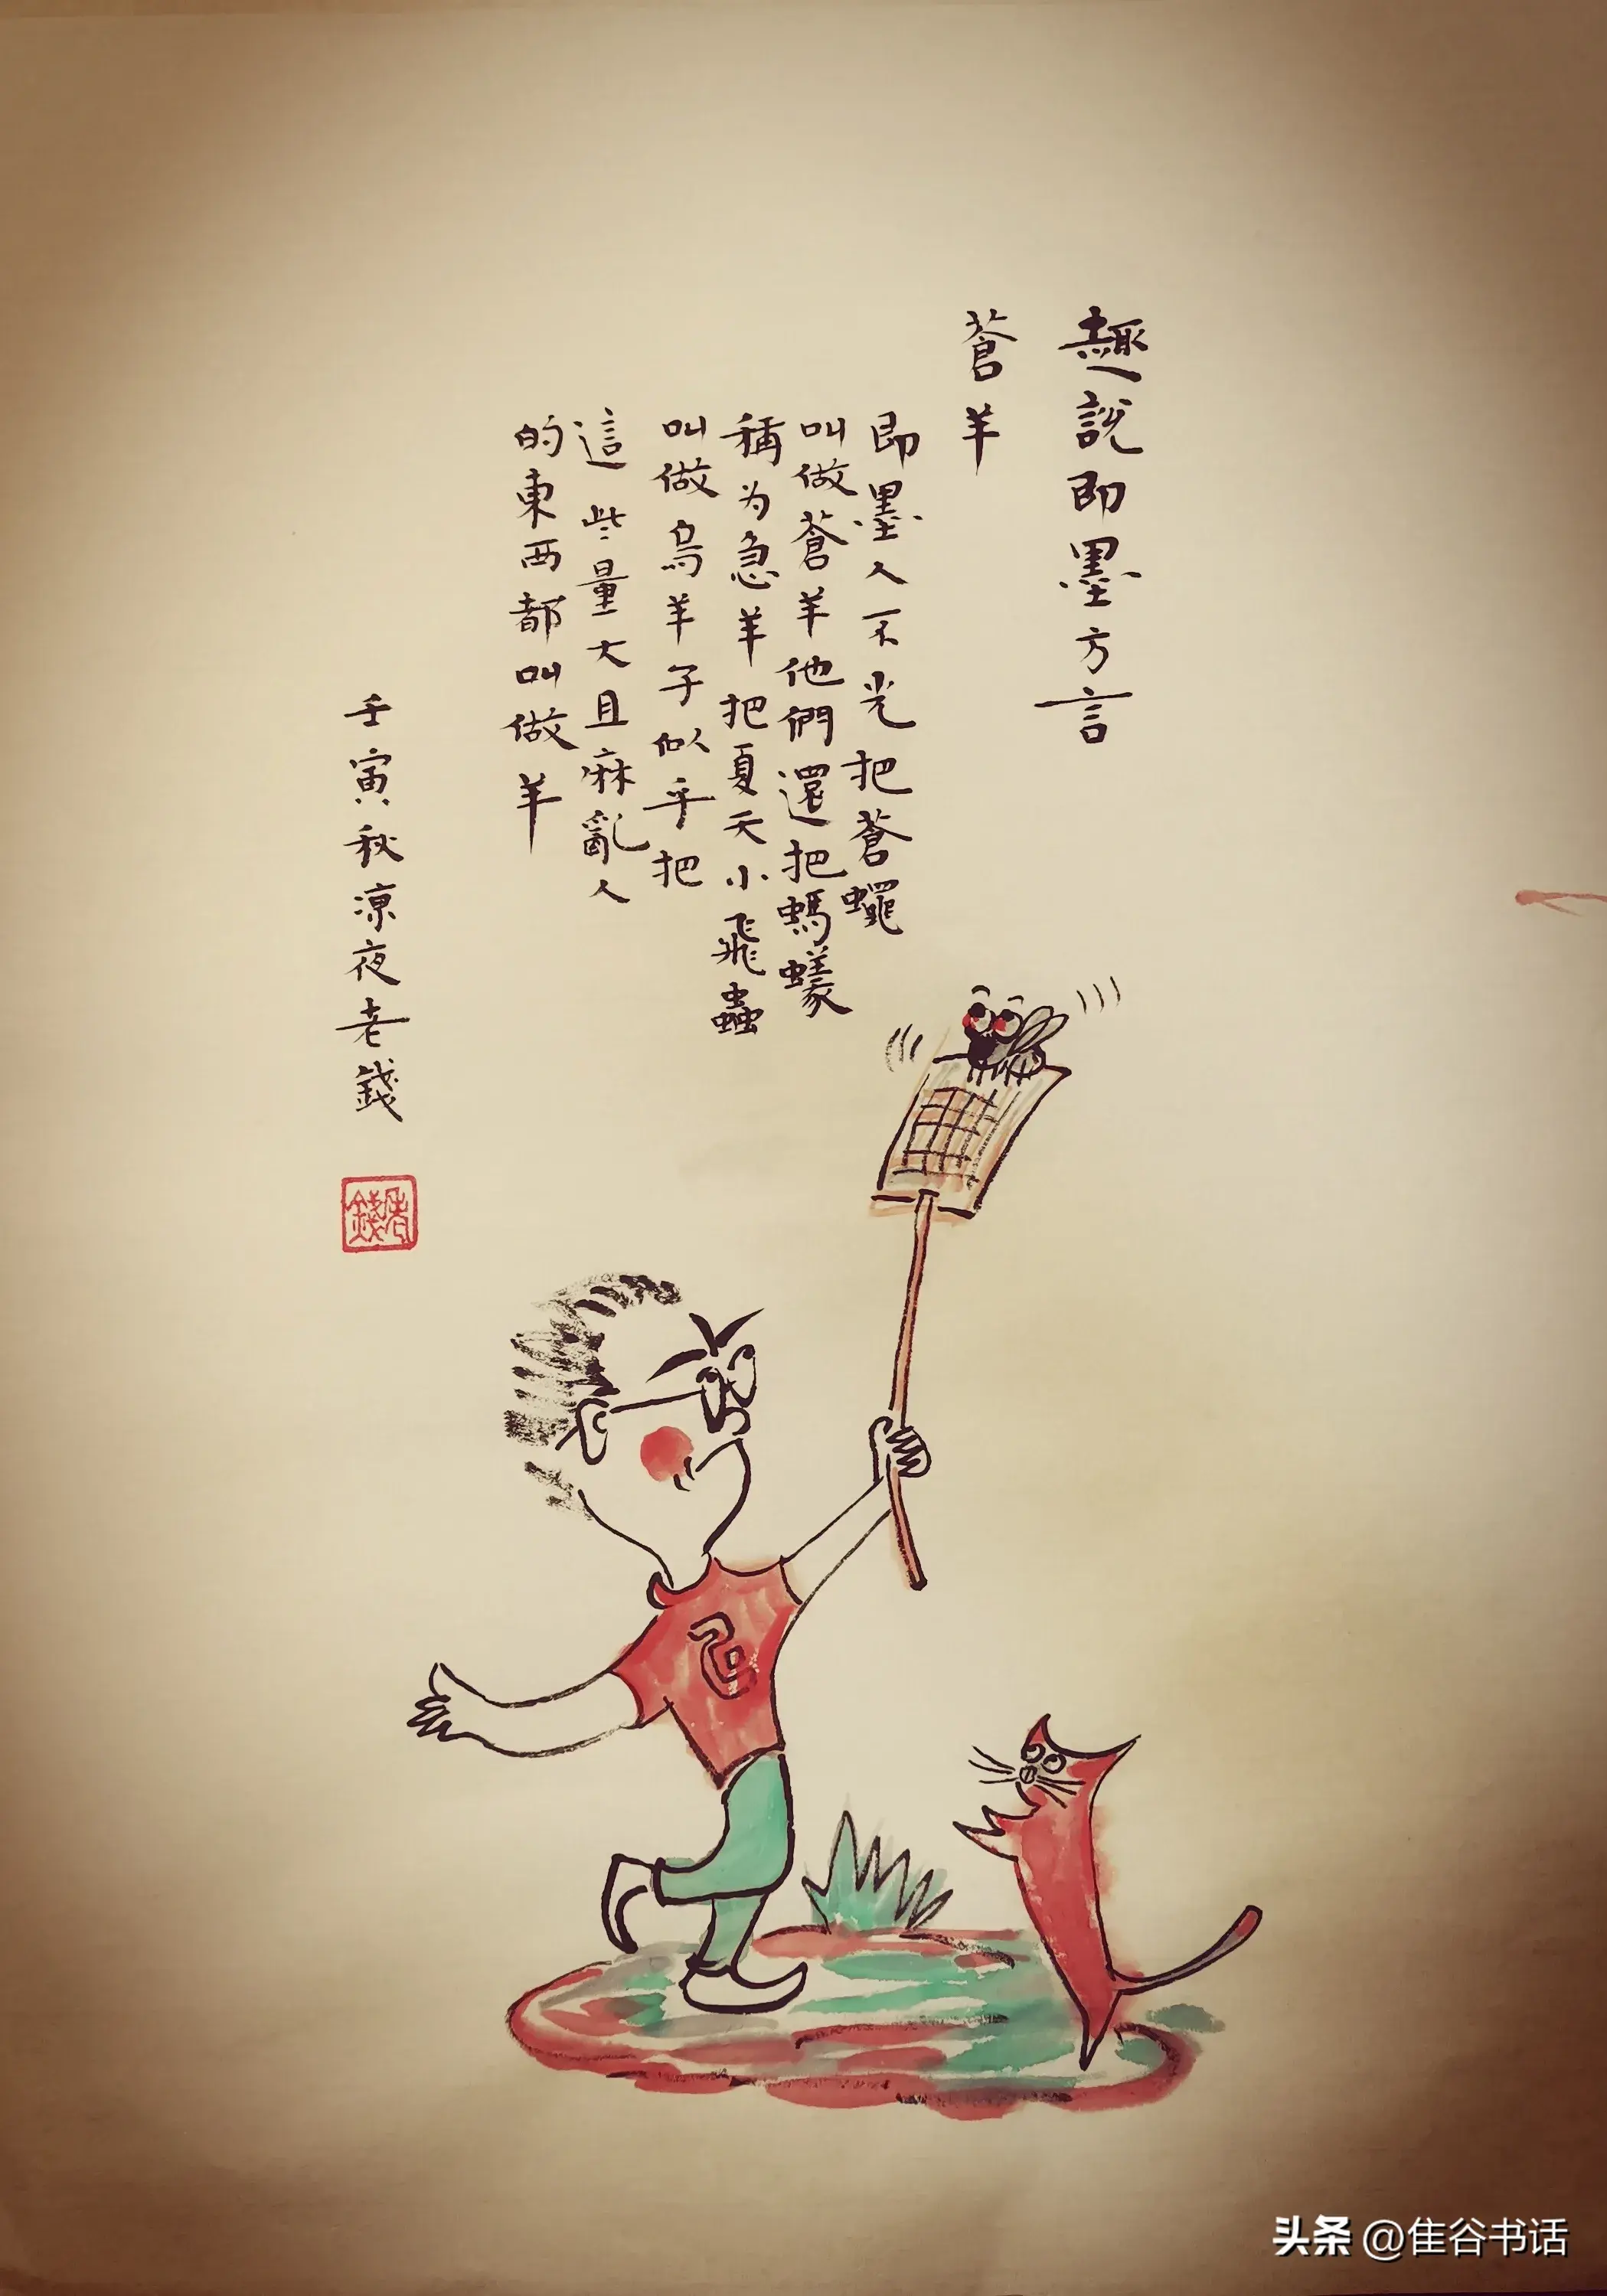 趣說即墨方言
蒼羊
即墨人不光把蒼蠅
叫做蒼羊他們還把螞蟻
稱为急羊把夏天小飛蟲
叫做烏羊子似乎把
這些量大且麻亂人
的東西都叫做羊
壬寅秋凉夜老錢
老錢
头条 @隹谷书话